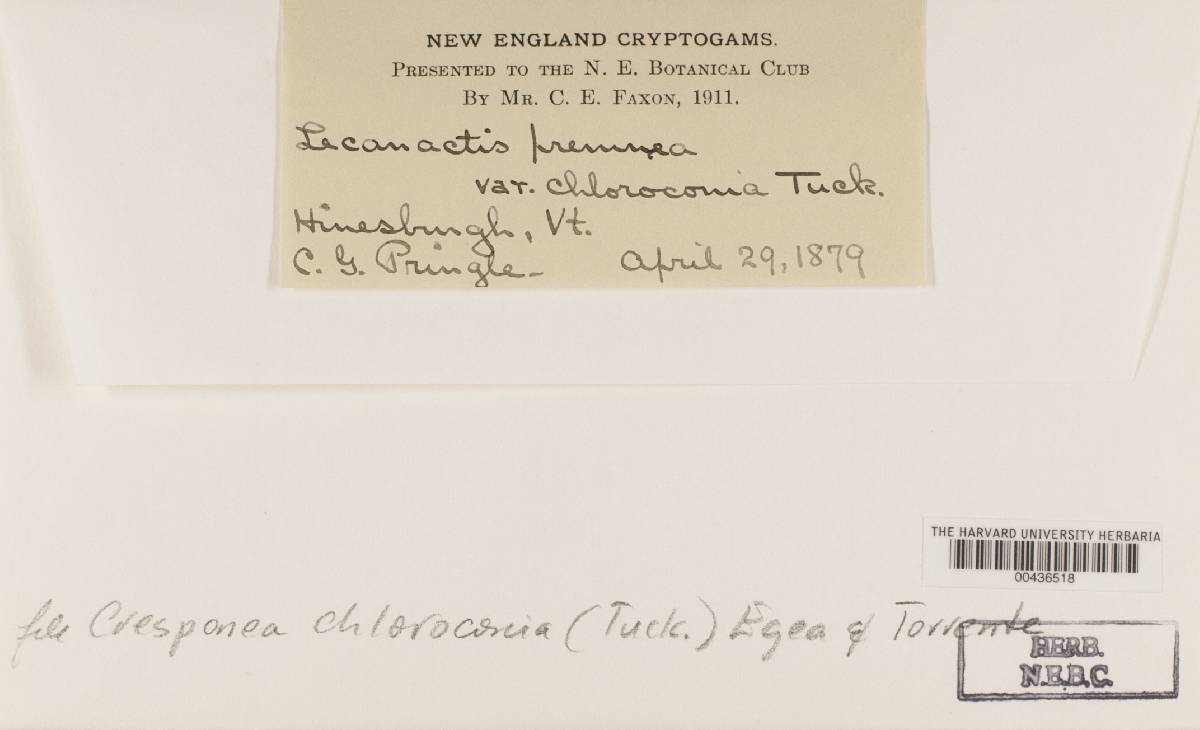 NEW ENGLAND CRYPTOGAMS.
PRESENTED TO THE N. E. BOTANICAL CLUB
BY MR. C. E. FAXON, 1911.
Lecanactis premnea
var. chloroconia Tuck.
Hinesburgh, Vt.
C. G. Pringle – April 29, 1879
THE HARVARD UNIVERSITY HERBARIA
00436518
file Cresponea chloroconia (Tuck.) Egea & Torrente
HERB.
N.E.B.C.